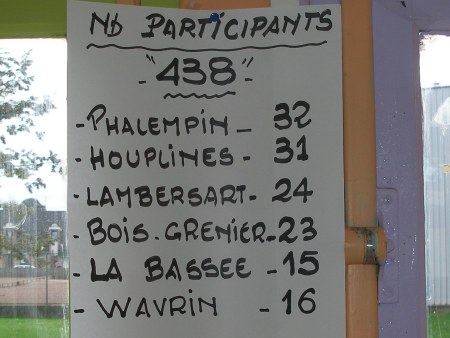 Nb PARTICIPANTS
- "438" -
- PHALEMPIN - 32
- HOUPLINES - 31
- LAMBERSART - 24
- BOIS.GRENIER - 23
- LA BASSEE - 15
- WAVRIN - 16